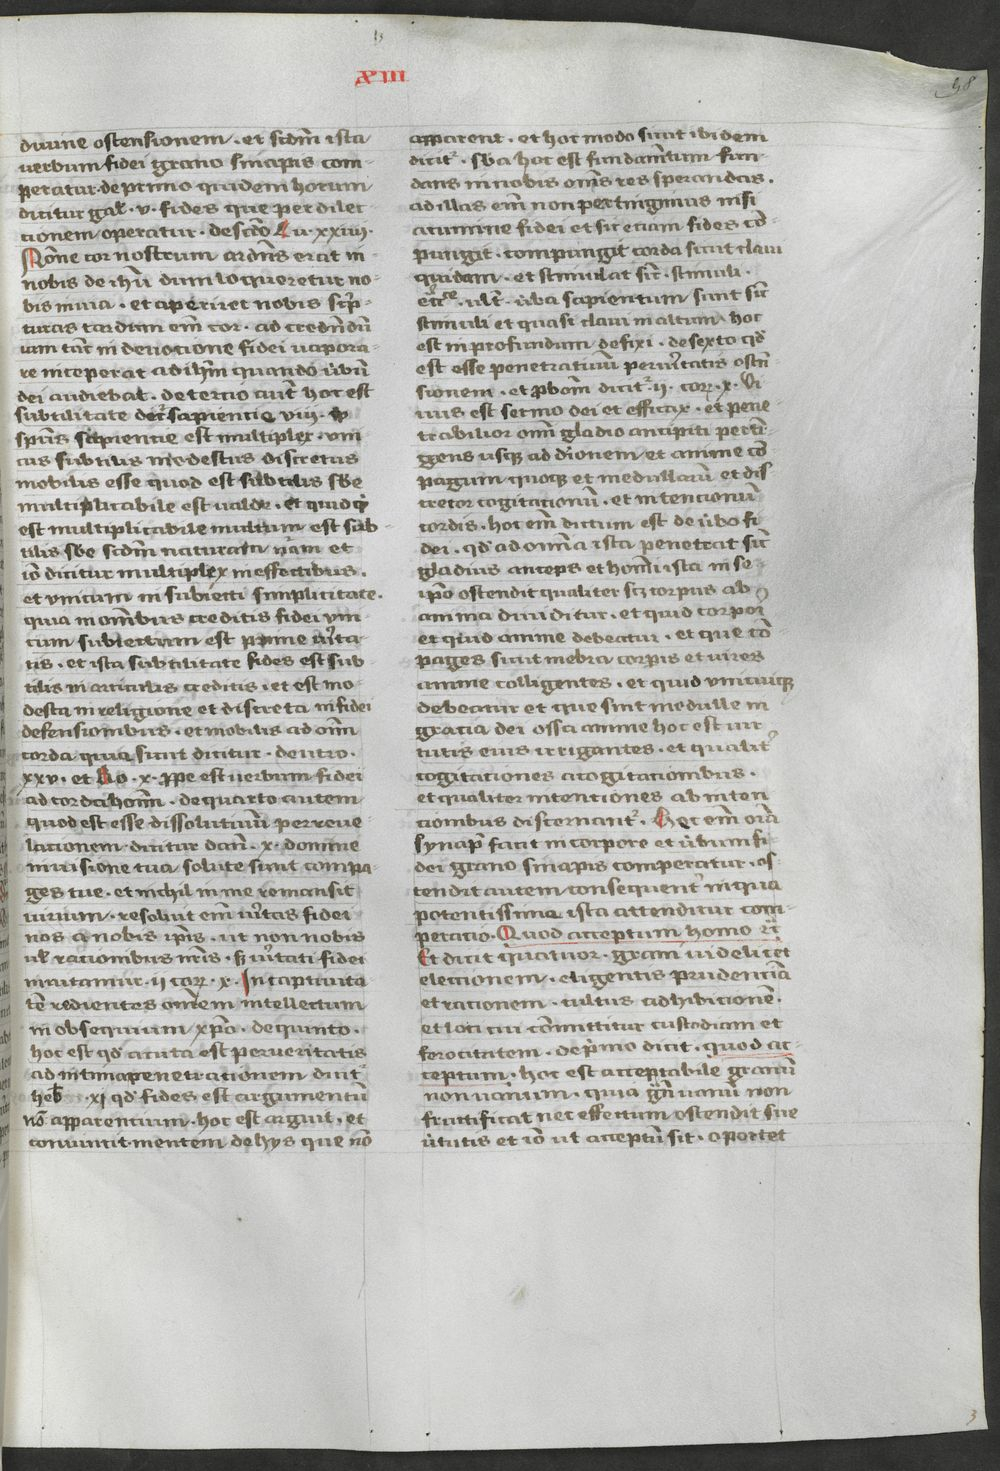 XIII
58
diuine ostensionem · et scdm ista
uerbum fidei grano sinapis com-
peratur · de primo quidem horum
dicitur gal · v · fides que per dilec-
tionem operatur · de scdo lu · xxiiij ·
Nōne cor nostrum ardēns erat in
nobis de ihū dum loqueretur no-
bis in uia · et aperiret nobis scrip-
turas tardum em̄ cor · ad credn̄dū
iam tūc in deuotione fidei uapora-
re inceperat ad ihm̄ quando ūbū
dei audiebat · de tercio aūt hoc est
subtilitate dr̄ sapientie viij ·
spūs sapientie est multiplex · vni-
cus subtilis modestus discretus
mobilis esse quod est subtilis sbe
multiplicabile est ualde · et quidqd
est multiplicabile multum est sub-
tilis sbe scdm naturam nām et
iō dicitur multiplex in effectibus ·
et vnicum in subiecti simplicitate ·
quia in omībus creditis fidei vni-
cum subiectum est prime ūita-
tis · et ista subtilitate fides est sub-
tilis in articulis creditis · et est mo-
desta in religione et discreta in fidei
defensionibus · et mobilis ad om̄i
corda quia sunt dicitur · deutro ·
xxv · et Ro · x · ppe est uerbum fidei
ad corda homī · de quarto autem
quod est esse dissolutiuū per reue-
lationem dicitur dani · x · domine
in uisione tua solute sunt compa-
ges tue · et nichil in me remansit
uirium · resoluit em̄ ūitas fidei
nos a nobis ipīs · ut non nobis
ul rationibus nrīs · s ūitati fidei
innitamur · ii corr · x · In captiuita
tē redientes omēm intellectum
in obsequium xpō · de quinto ·
hoc est qd acuta est per ueritatis
ad intima penetrationem dicit'
heb · xi qd fides est argumentū
nō apparentium · hoc est arguit · et
conuincit mentem de hys que nō
apparent · et hoc modo sicut ibidem
dicit' · sba hoc est fundamtum fun-
dans in nobis omīs res sperandas ·
ad illas em̄ non pertingimus nisi
acumine fidei et sic etiam fides cō-
pungit · compungit corda sicut claui
quidam · et stimulat sic̄ stimuli ·
ecce · ult · ūba sapientum sunt sic̄
stimuli et quasi claui in altum hoc
est in profundum defixi · de sexto qd
est esse penetratiuū per ūitatis ostn̄-
sionem · et pbom̄ dicit' · ii · corr · x · Vi
uus est sermo dei et efficax · et pene
trabilior om̄i gladio ancipiti perti-
gens usq ad diuionem et anime cō
pagum quoq et medullarū et dis
cretor cogitationū · et intencionū
cordis · hoc em̄ dictum est de ūbo fi
dei · qd ad omīa ista penetrat sic̄
gladius anceps et homī ista in se-
ipō ostendit qualiter scz corpus ab
anima diuiditur · et quid corpori
et quid anime debeatur · et que cō-
pages sunt mēbra corpis et uires
anime colligentes · et quid vnicuiq
debeatur et que sint medulle in
gratia dei ossa anime hoc est uir
tutis eius irrigantes · et qualit'
cogitationes a cogitationibus ·
et qualiter intentiones ab inten
tionibus discernant' · Hec em̄ oīa
synap' facit in corpore et ūbum fi
dei grano sinapis comperatur · os
tendit autem consequent' in qua
potentissima ista attenditur com-
peratio · Quod acceptum homo rc̄
Et dicit quatuor · gram̄ uidelicet
electionem · eligentis prudenciā
et rationem · cultus adhibicionē ·
et loci cui cōmittitur custodiam et
ferocitatem · de pmo dicit · quod ac-
ceptum · hoc est acceptabile granū
non uanum · quia gn̄ uanū non
fructificat nec effectum ostendit sue
ūtutis et iō ut acceptū sit · oportet
3